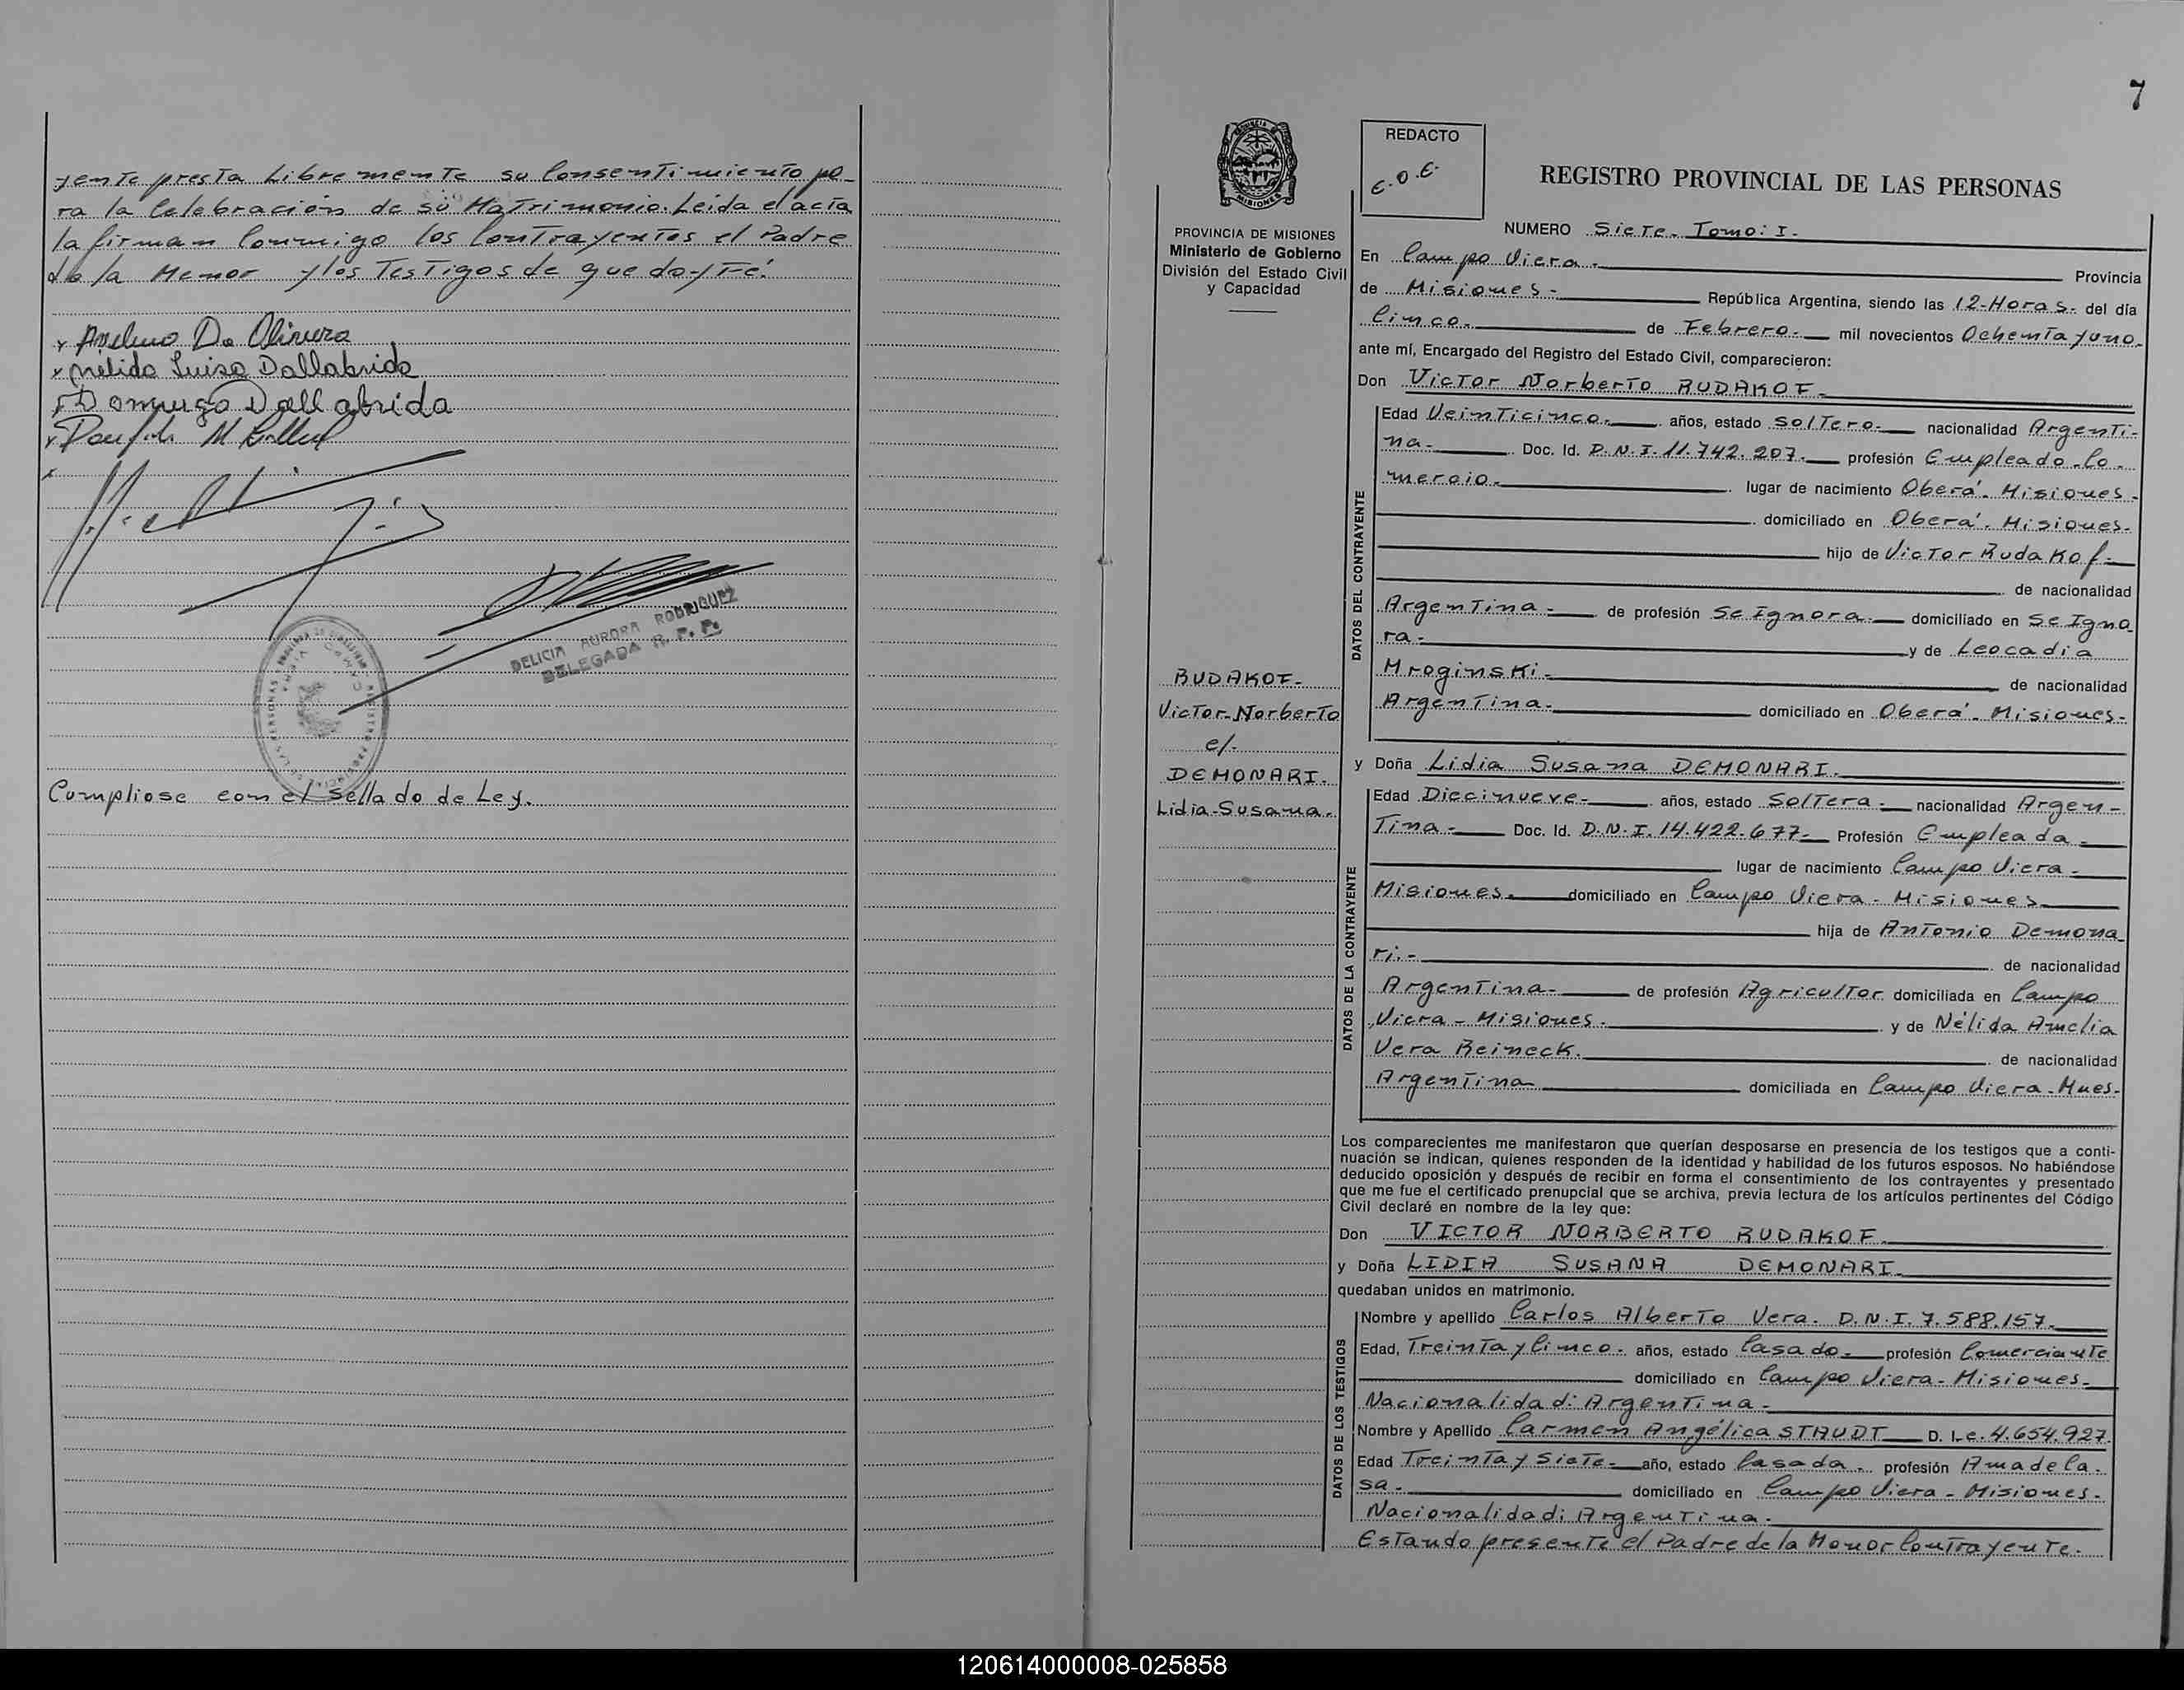 yente presta Libremente su Consentimiento pa-
ra la Celebración de su Matrimonio. Leida el acta
la firman Conmigo los Contrayentes el Padre
de la Menor y los Testigos de que doy Fé.
Anselmo Da Olivera
Nélida Luisa Dallabrida
Domingo Dallabrida
DELICIA AURORA RODRIGUEZ
DELEGADA R. P. P.
Cumpliose con el Sellado de Ley.
7
REDACTO
E.O.E.
REGISTRO PROVINCIAL DE LAS PERSONAS
PROVINCIA DE MISIONES
Ministerio de Gobierno
División del Estado Civil
y Capacidad
NUMERO Siete. Tomo: I.
En Campo Viera. Provincia
de Misiones República Argentina, siendo las 12-Horas- del día
Cinco. de Febrero. mil novecientos Ochenta y uno.
ante mí, Encargado del Registro del Estado Civil, comparecieron:
Don Victor Norberto RUDAKOF.
DATOS DEL CONTRAYENTE
Edad Veinticinco. años, estado Soltero. nacionalidad Argenti-
na. Doc. Id. D.N.I. 11.742.207. profesión Empleado Co-
mercio. lugar de nacimiento Oberá. Misiones.
domiciliado en Oberá. Misiones.
hijo de Victor Rudakof.
de nacionalidad
Argentina. de profesión Se Ignora. domiciliado en Se Igno-
ra. y de Leocadia
Mroginski. de nacionalidad
Argentina. domiciliado en Oberá. Misiones-
RUDAKOF-
Victor-Norberto
c/.
DEMONARI.
Lidia-Susana.
y Doña Lidia Susana DEMONARI.
DATOS DE LA CONTRAYENTE
Edad Diecinueve. años, estado Soltera. nacionalidad Argen-
tina. Doc. Id. D.N.I. 14.422.677. Profesión Empleada.
lugar de nacimiento Campo Viera.
Misiones. domiciliado en Campo Viera. Misiones
hija de Antonio Demona-
ri.- de nacionalidad
Argentina- de profesión Agricultor domiciliada en Campo
Viera - Misiones. y de Nélida Amelia
Vera Reineck. de nacionalidad
Argentina domiciliada en Campo Viera - Mnes.
Los comparecientes me manifestaron que querían desposarse en presencia de los testigos que a conti-
nuación se indican, quienes responden de la identidad y habilidad de los futuros esposos. No habiéndose
deducido oposición y después de recibir en forma el consentimiento de los contrayentes y presentado
que me fue el certificado prenupcial que se archiva, previa lectura de los artículos pertinentes del Código
Civil declaré en nombre de la ley que:
Don VICTOR NORBERTO RUDAKOF.
y Doña LIDIA SUSANA DEMONARI
quedaban unidos en matrimonio.
DATOS DE LOS TESTIGOS
Nombre y apellido Carlos Alberto Vera. D.N.I. 7.588.157.
Edad, Treinta y Cinco. años, estado Casado. profesión Comerciante
domiciliado en Campo Viera - Misiones.
Nacionalidad: Argentina.
Nombre y Apellido Carmen Angélica STAUDT D. I.C. 4.654.927.
Edad Treinta y Siete. año, estado Casada. profesión Ama de Ca-
sa. domiciliado en Campo Viera - Misiones.
Nacionalidad: Argentina.
Estando presente el Padre de la Menor Contrayente.
120614000008-025858